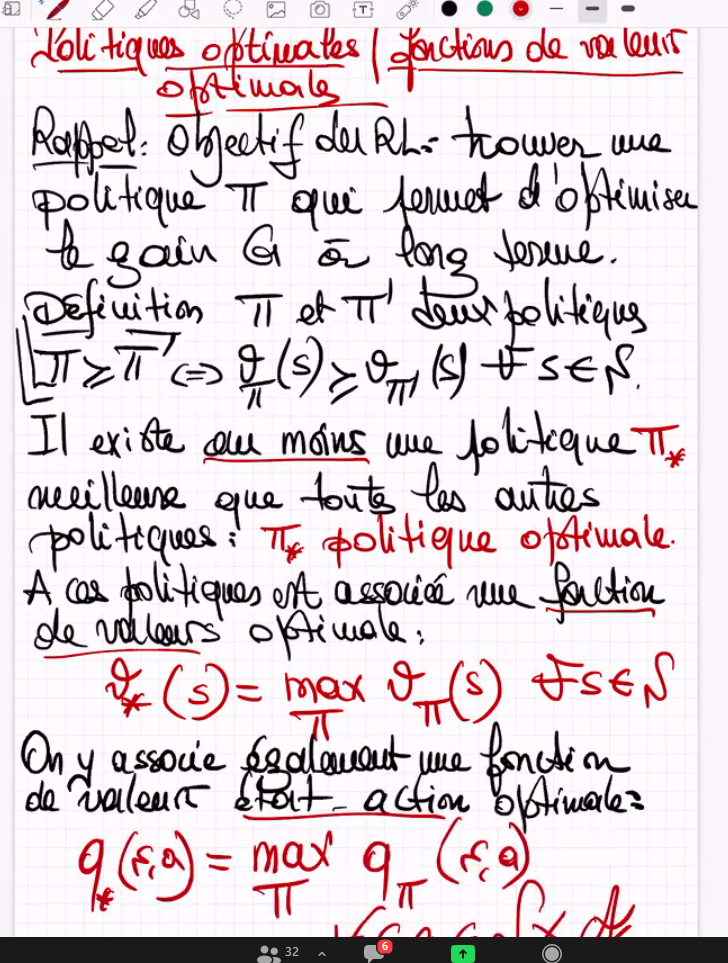 Politiques optimales / fonctions de valeur
optimales
Rappel: Objectif du RL: trouver une
politique π qui permet d'optimiser
le gain G à long terme.
Définition π et π' deux politiques
π ≥ π' ⇔ v_π(s) ≥ v_π'(s) ∀ s ∈ S.
Il existe au moins une politique π_*
meilleure que toutes les autres
politiques: π_* politique optimale.
A ces politiques est associée une fonction
de valeurs optimale:
v_*(s) = max_π v_π(s) ∀ s ∈ S
On y associe également une fonction
de valeur état-action optimale:
q_*(s,a) = max_π q_π(s,a)
32
6